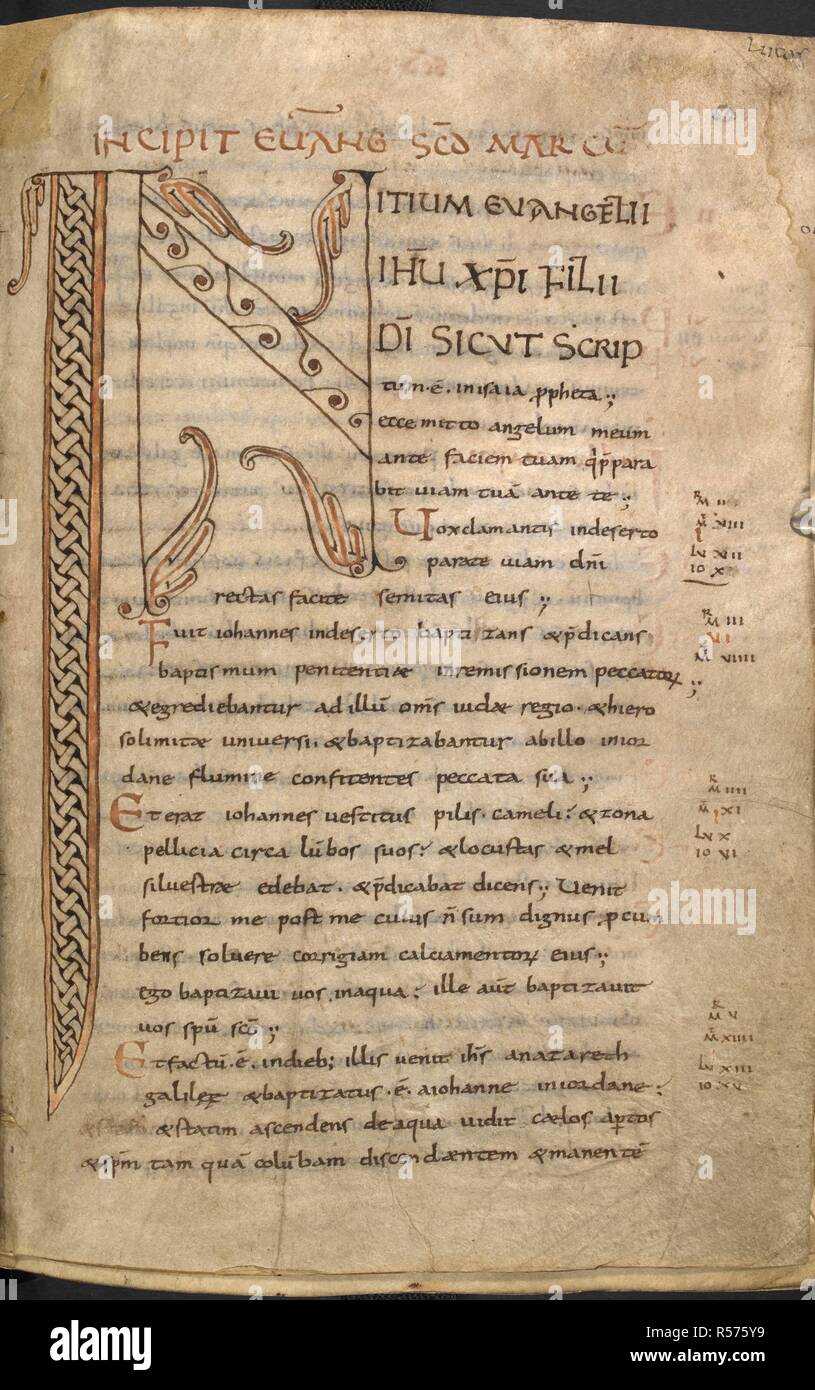 Lucas
INCIPIT EUANG SCD MARCU̅
INITIUM EUANGELII
IH̅U XP̅I FILII
DI̅ SICUT SCRIP
tum·e̅·inisaia propheta;
ecce mitto angelum meum
ante faciem tuam qi pre̅para
bit uiam tua̅ ante te;
Uoxclamantis indeserto
parate uiam dn̅i
rectas facite semitas eius;
Fuit iohannes indeserto baptizans &p̅dicans
baptismum penitentiæ inremissionem peccatoꝝ;
&egrediebantur adillu̅ om̅s iudæ regio·&hiero
solimitæ uniuersi·&baptizabantur abillo inior
dane flumine confitentes peccata sua;
Et erat iohannes uestitus pilis·cameli:&zona
pellicia circa lu̅bos suos:&locustas &mel
siluestræ edebat·&p̅dicabat dicens; Uenit
fortior me post me cuius n̅ sum dignus procum
bens soluere corrigiam calciamentoꝝ eius;
ego baptizaui uos inaqua: ille aut̅ baptizauit
uos spu̅ sco̅;
Et factu̅·e̅·indieb; illis uenit ih̅s anazareth
galileę &baptizatus·e̅·aiohanne iniordane:
&statim ascendens deaqua uidit cælos ap̅tos
&sp̅m tam qua̅ colu̅bam discendæntem &manente̅
R
M II
M̅ VIII
LU VII
IO X
R
M III
VI
M̅ VIIII
R
M IIII
M̅ XI
LU X
IO VI
R
M V
M̅ XIIII
LU XIII
IO XV
alamy
Image ID: R575Y9
www.alamy.com